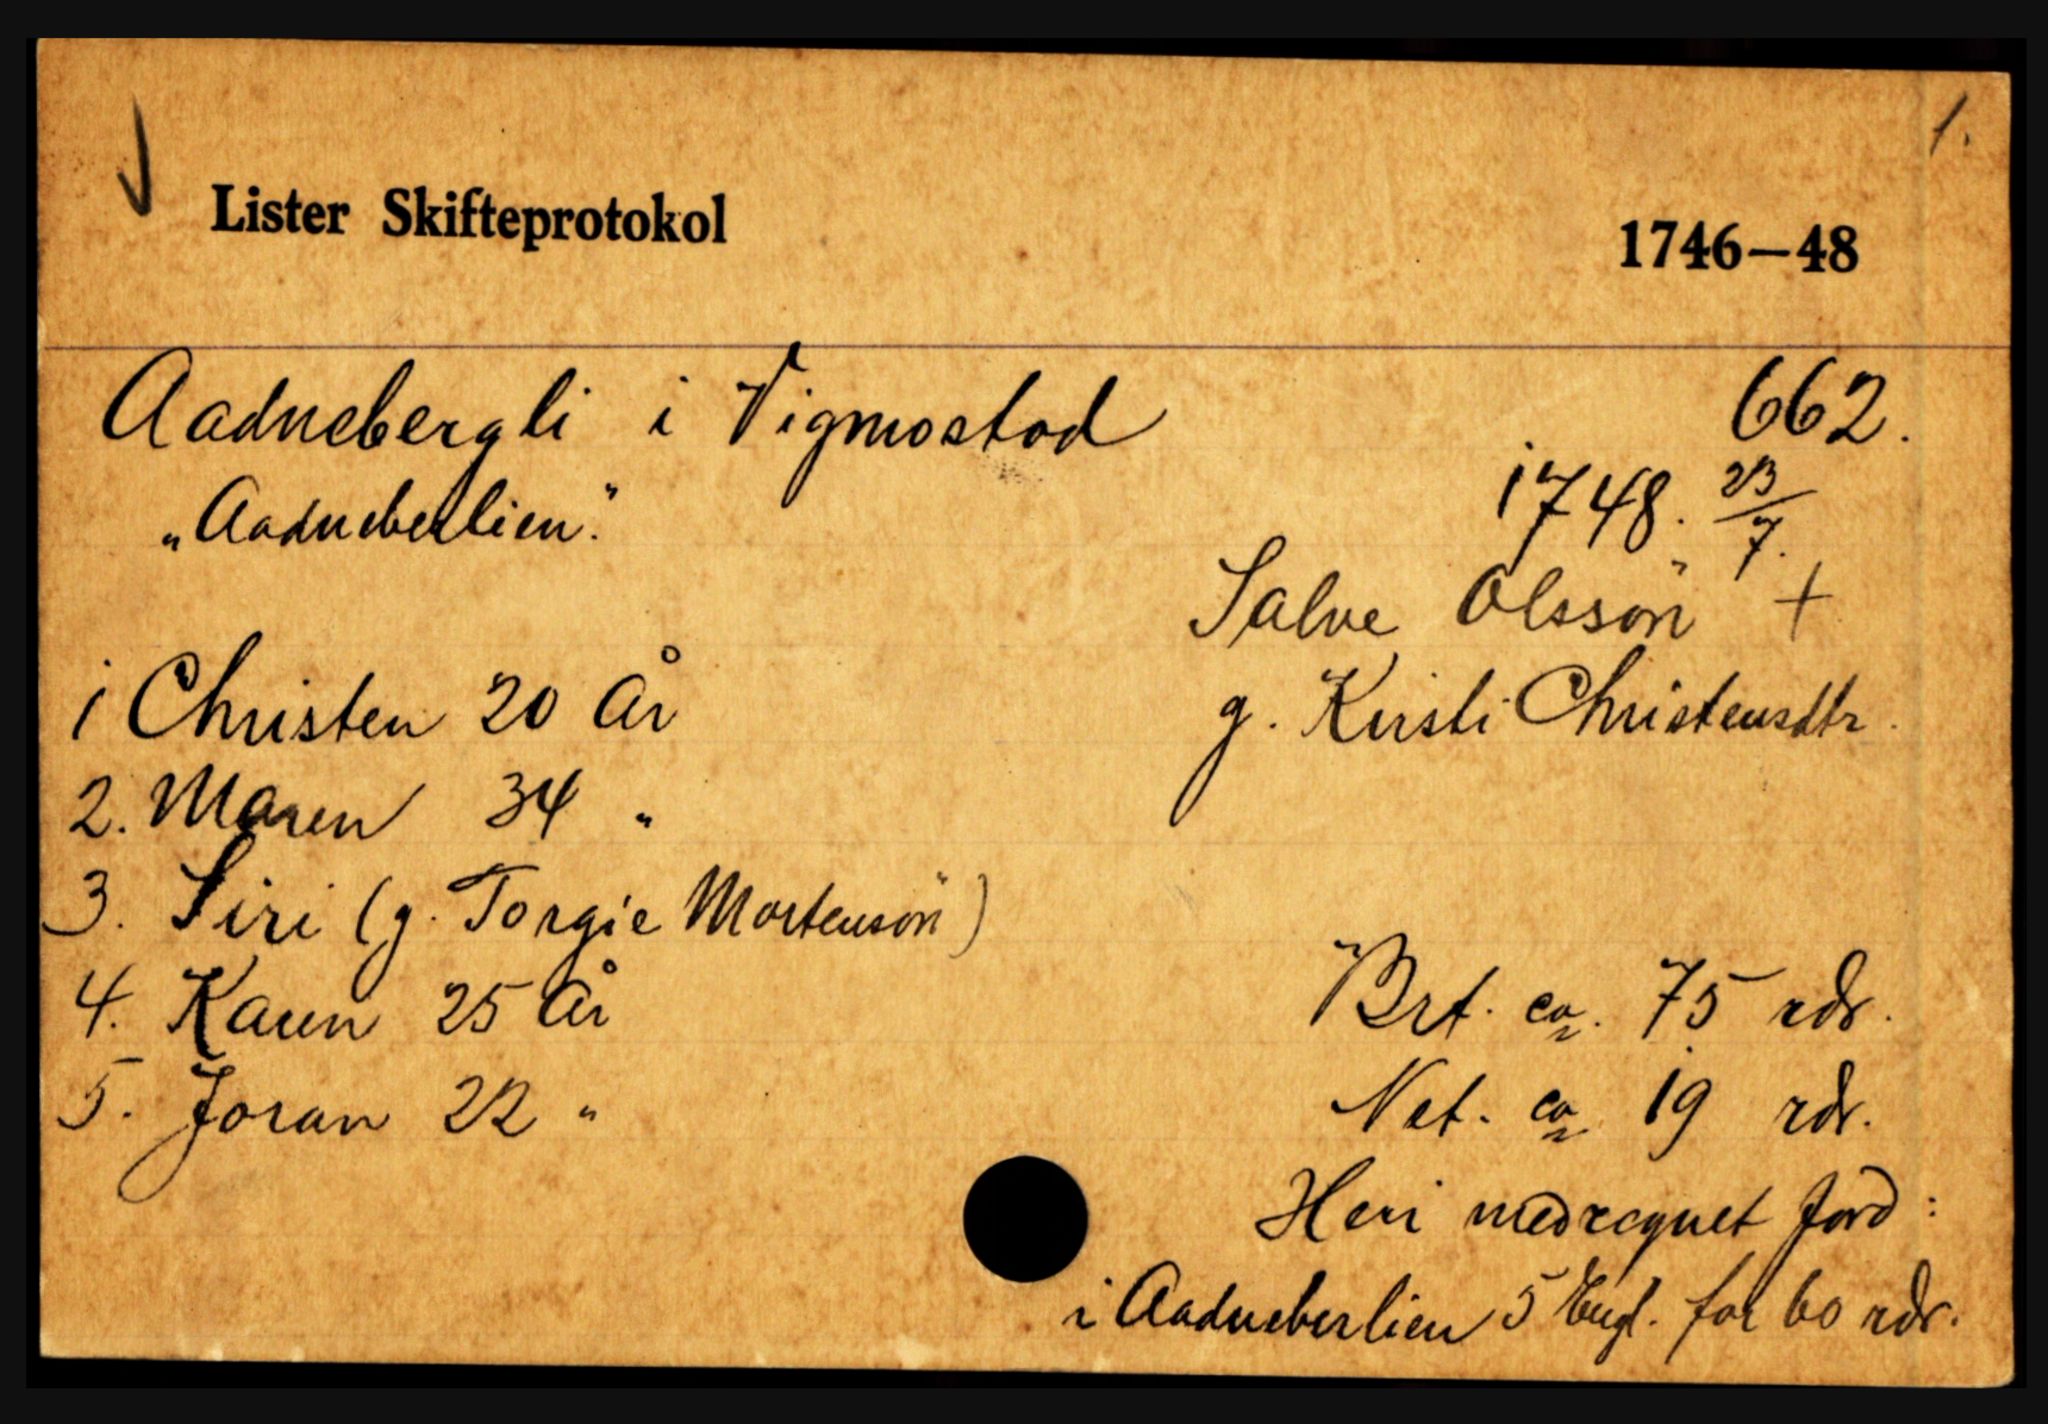 1.
Lister Skifteprotokol 1746–48
Aadnebergli i Vigmostad 662.
„Aadneberlien."
1748. 23/7.
Salve Olssön +
g. Kirsti Christensdtr.
1 Christen 20 år
2. Maren 34 "
3. Siri (g. Torgie Mortensön)
4. Karen 25 år
5. Joran 22 "
Brt. ca. 75 rdr.
Net. ca. 19 rdr.
Heri medregnet jord:
i Aadneberlien 5 Engl. for 60 rdr.